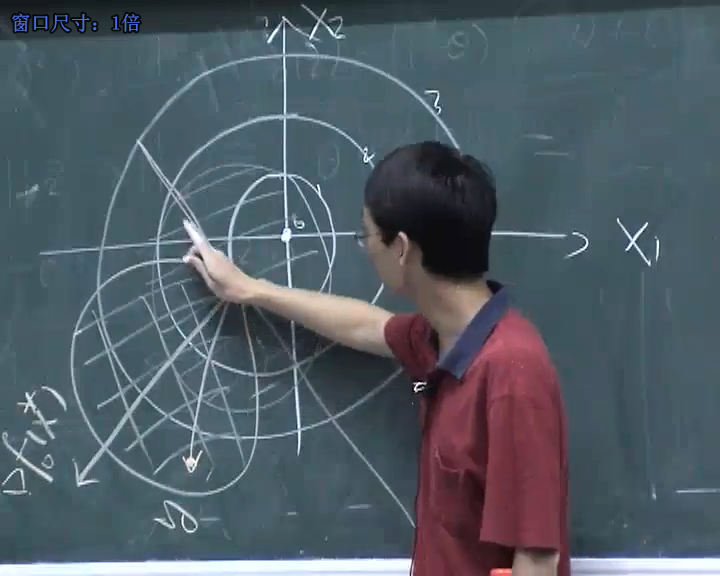 窗口尺寸：1倍
X2
3
2
1
0
X1
∇f0(x*)
D